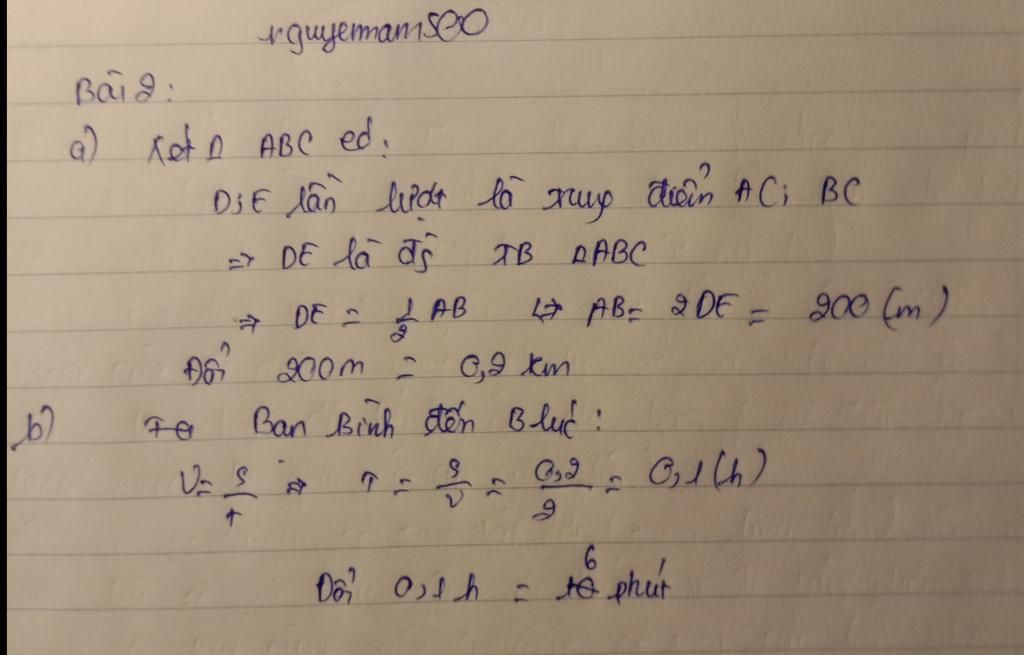 nguyennam500
Bài 2:
a) Xét Δ ABC có:
D; E lần lượt là trung điểm AC; BC
=> DE là đg TB ΔABC
=> DE = 1/2 AB <=> AB = 2DE = 200 (m)
Đổi 200m = 0,2 km
b) Bạn Bình đến B lúc:
V = S/t => T = S/v = 0,2/2 = 0,1 (h)
Đổi 0,1 h = 6 phút